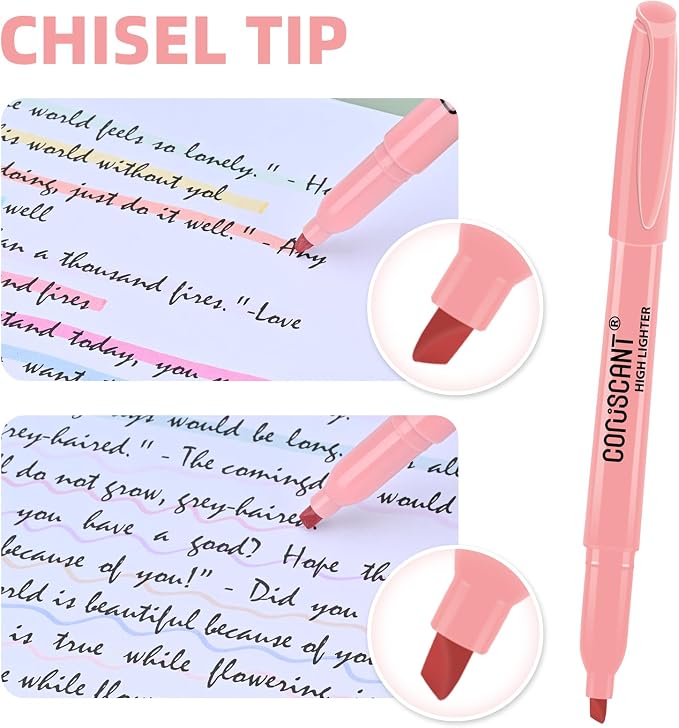 CHISEL TIP
e world feels so lonely." - He
is world without yol
doing, just do it well." - Any
well
an a thousand fires. "-Love
nd fires
stand today, you
want
ays would be long.
all
grey-haired. " - The comingd would
do not grow, grey-haired.
you have a good? Hope th
because of you!" - Did you
rld is beautiful because of you
is true while flowering
while flow
corusCANT®
HIGH LIGHTER